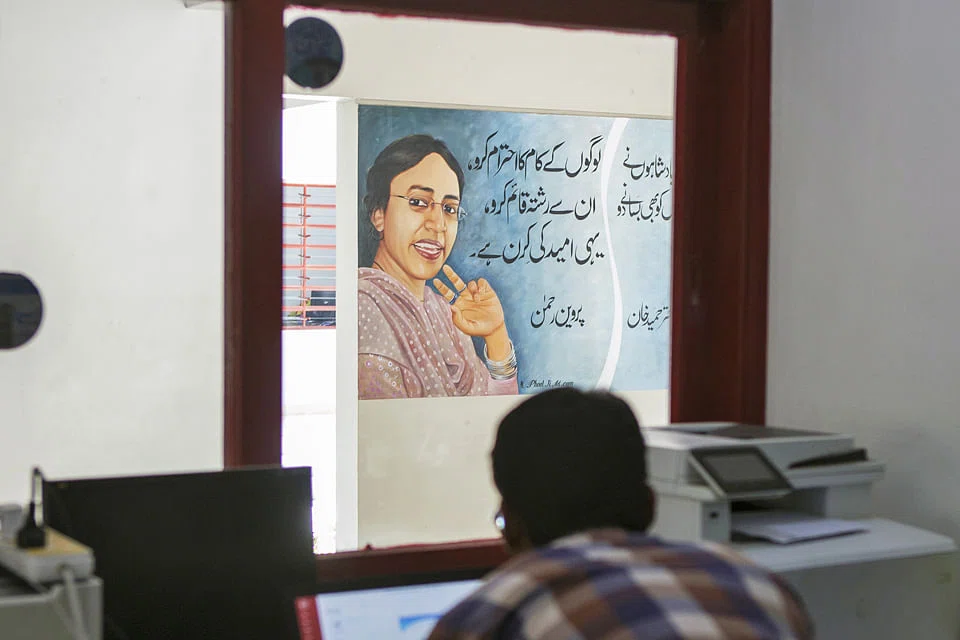 لوگوں کے کام کا احترام کرو،
ان سے رشتہ قائم کرو،
یہی امید کی کرن ہے۔
پروین رحمٰن
دشاہوں نے
کو بھی بسانے دو
تر حمید خان
Phool Ji Art.com